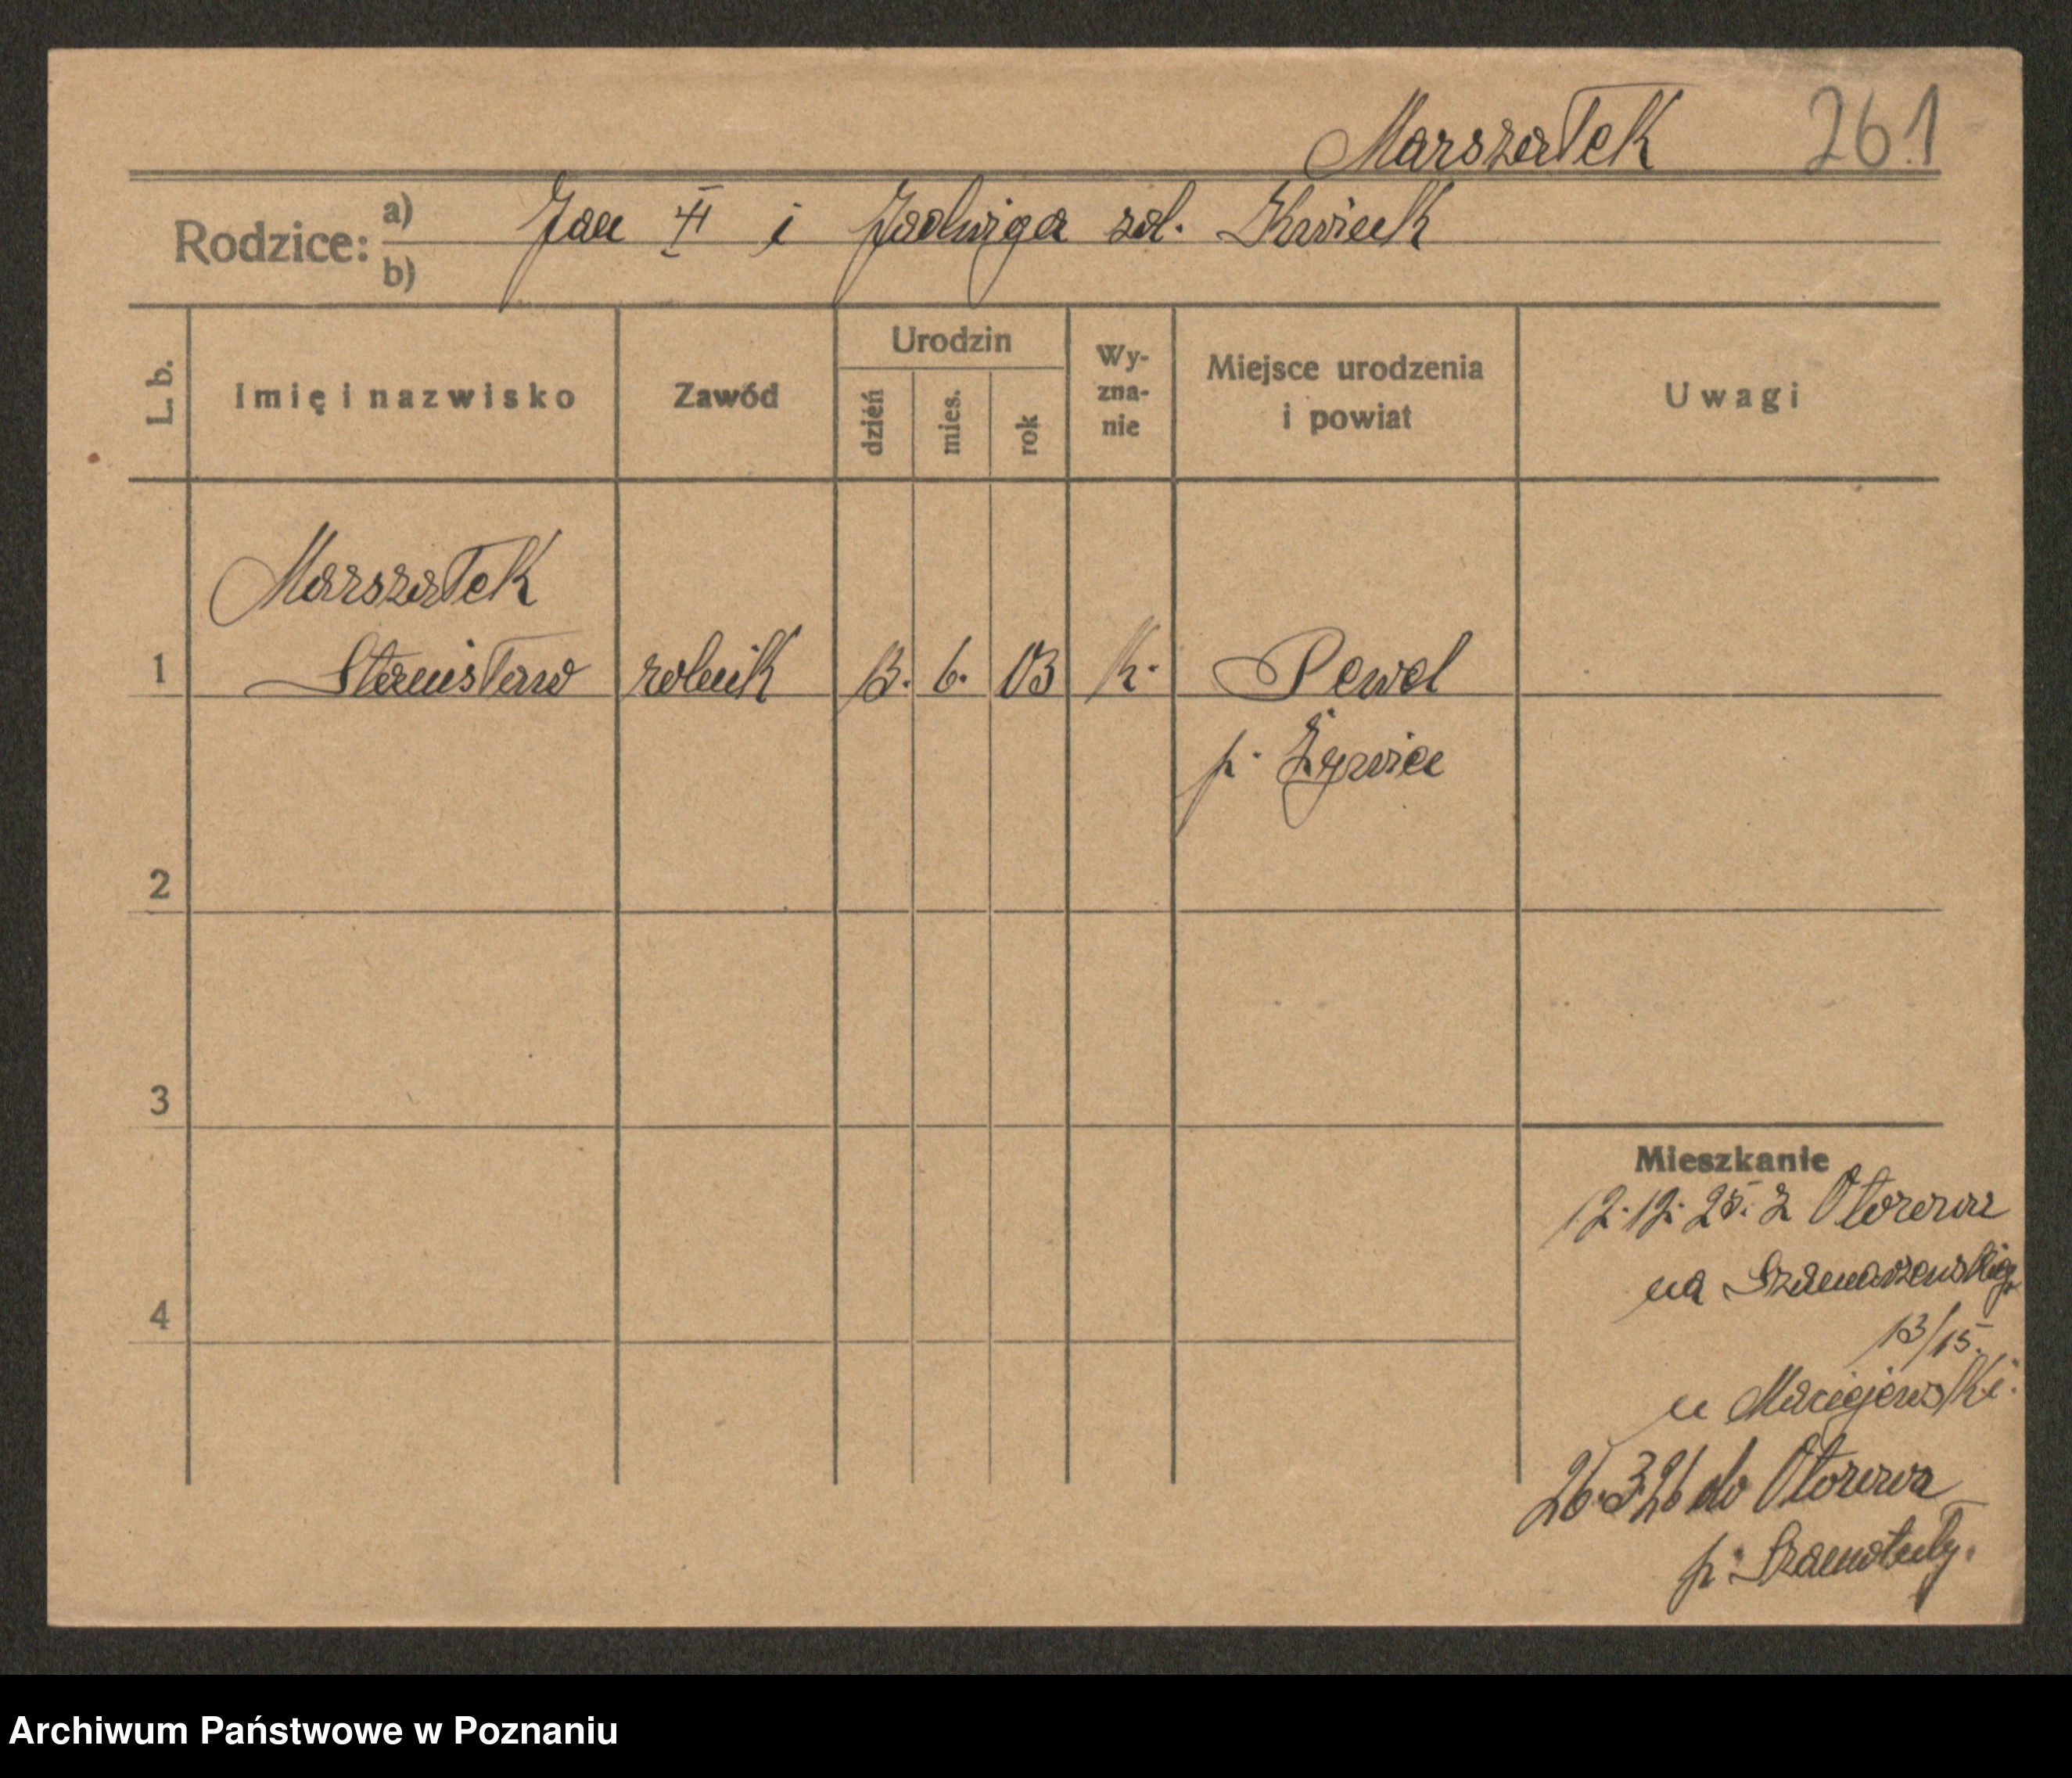 Marszałek 261
Rodzice: a) Jan II i Jadwiga zd.
b)
L. b. Imię i nazwisko Zawód Urodzin dzień mies. rok Wy-zna-nie Miejsce urodzenia i powiat Uwagi
Marszałek
1 Stanisław rolnik 13. 6. 03 k. Pewel
p. Żywiec
2
3
Mieszkanie
12.12.25. z Otorowa
na Szamarzewskieg
4
13/15.
u Maciejewski.
26.3.26 do Otorowa
p. Szamotuły.
Archiwum Państwowe w Poznaniu